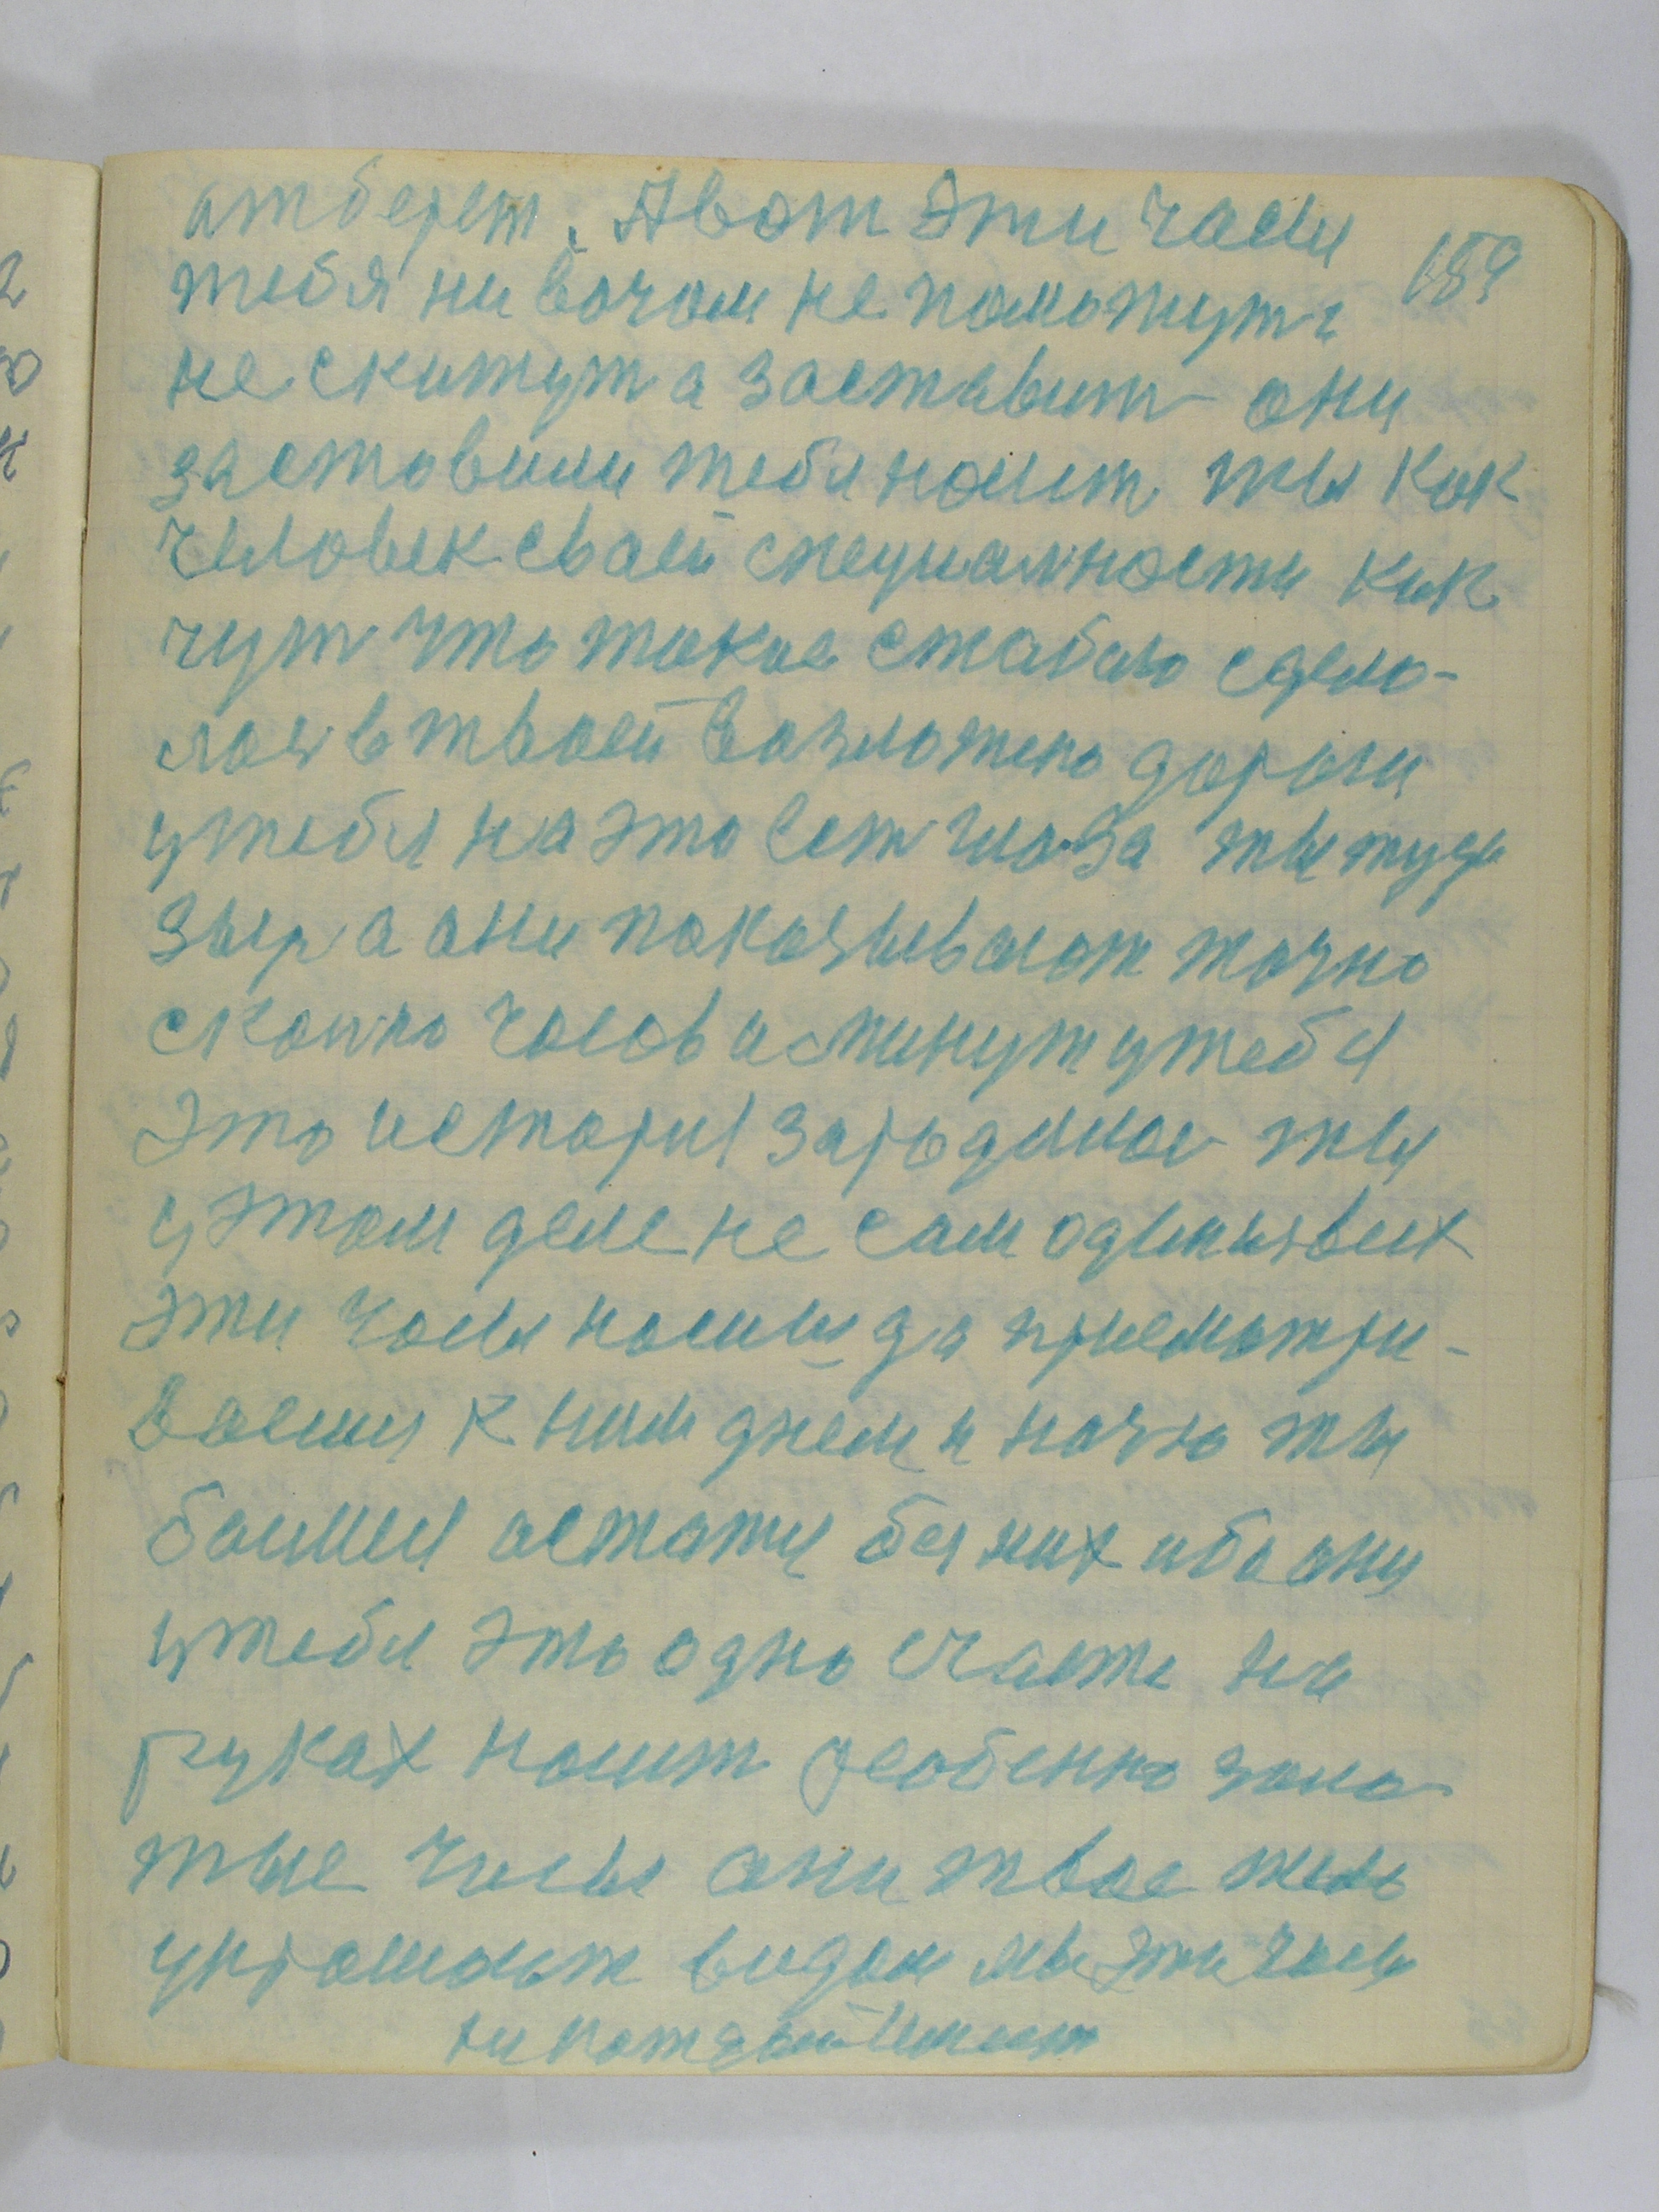 атберет. Авот Эти часы
159
тебя ни вочом не поможут и
не скитут а заставит они
заставили тебя носит ты как
человек сваей специалности как
чут что такое стабою сдело-
лос в твоей возможено дороги
утебя на это ест глаза ты туда
зыр а они показывают точно
сконко часов и минут утебя
Это история зародилос ты
у этом деле не сам один извсех
Эти часы носиш да присмотри-
ваеиш к ним днем и ночю ты
боишся астатця без них ибо они
утебя это одно счасте на
руках носит особенно золо-
тые часы они твое тело
украшают видом мы эти часы
ни каждый имеет